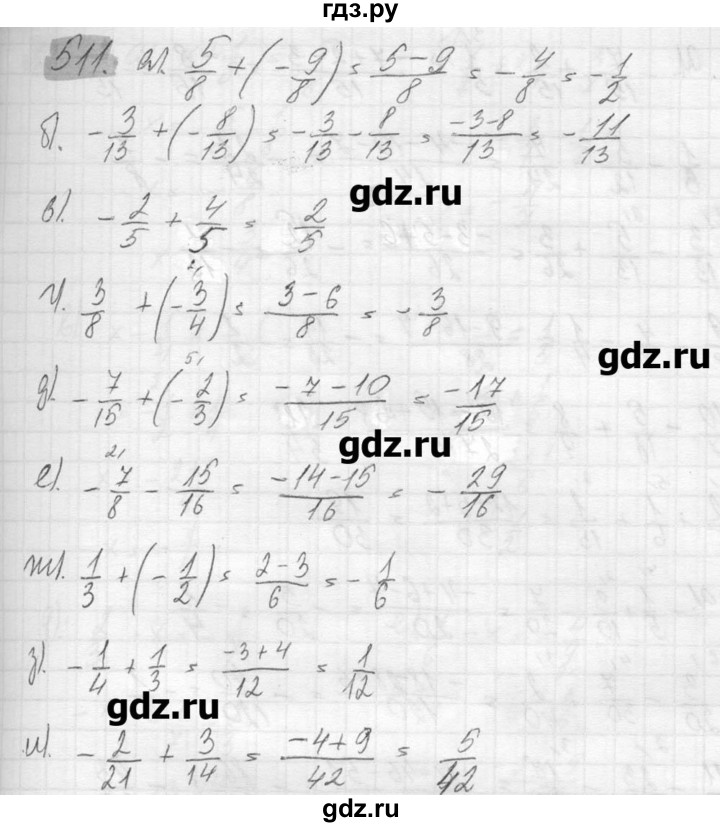 гдз.ру
511. а). 5/8 + (-9/8) = (5-9)/8 = -4/8 = -1/2
б). -3/13 + (-8/13) = -3/13 - 8/13 = (-3-8)/13 = -11/13
gdz.ru
в). -2/5 + 4/5 = 2/5
г). 3/8 + (-3/4 2\) = (3-6)/8 = -3/8
gdz.ru
д). -7/15 + (-2/3 5\) = (-7-10)/15 = -17/15
gdz.ru
е). -7/8 2\ - 15/16 = (-14-15)/16 = -29/16
ж). 1/3 + (-1/2) = (2-3)/6 = -1/6
з). -1/4 + 1/3 = (-3+4)/12 = 1/12
gdz.ru
и). -2/21 + 3/14 = (-4+9)/42 = 5/42
gdz.ru